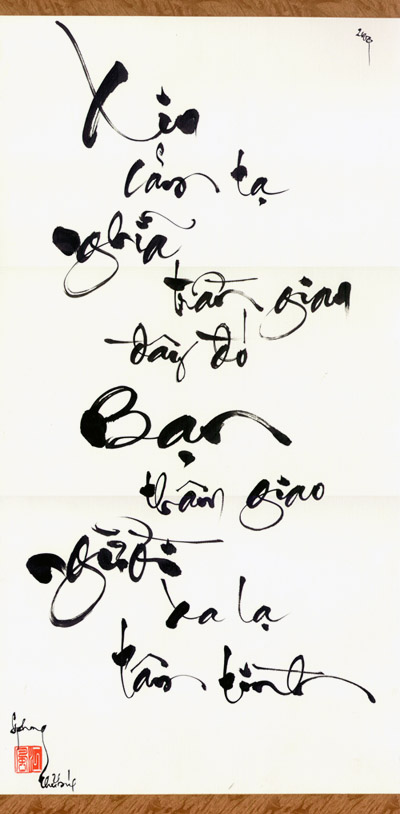 Xin
cảm tạ
nghĩa
trần gian
đây đó
Bạn
thâm giao
người
xa lạ
tâm tình